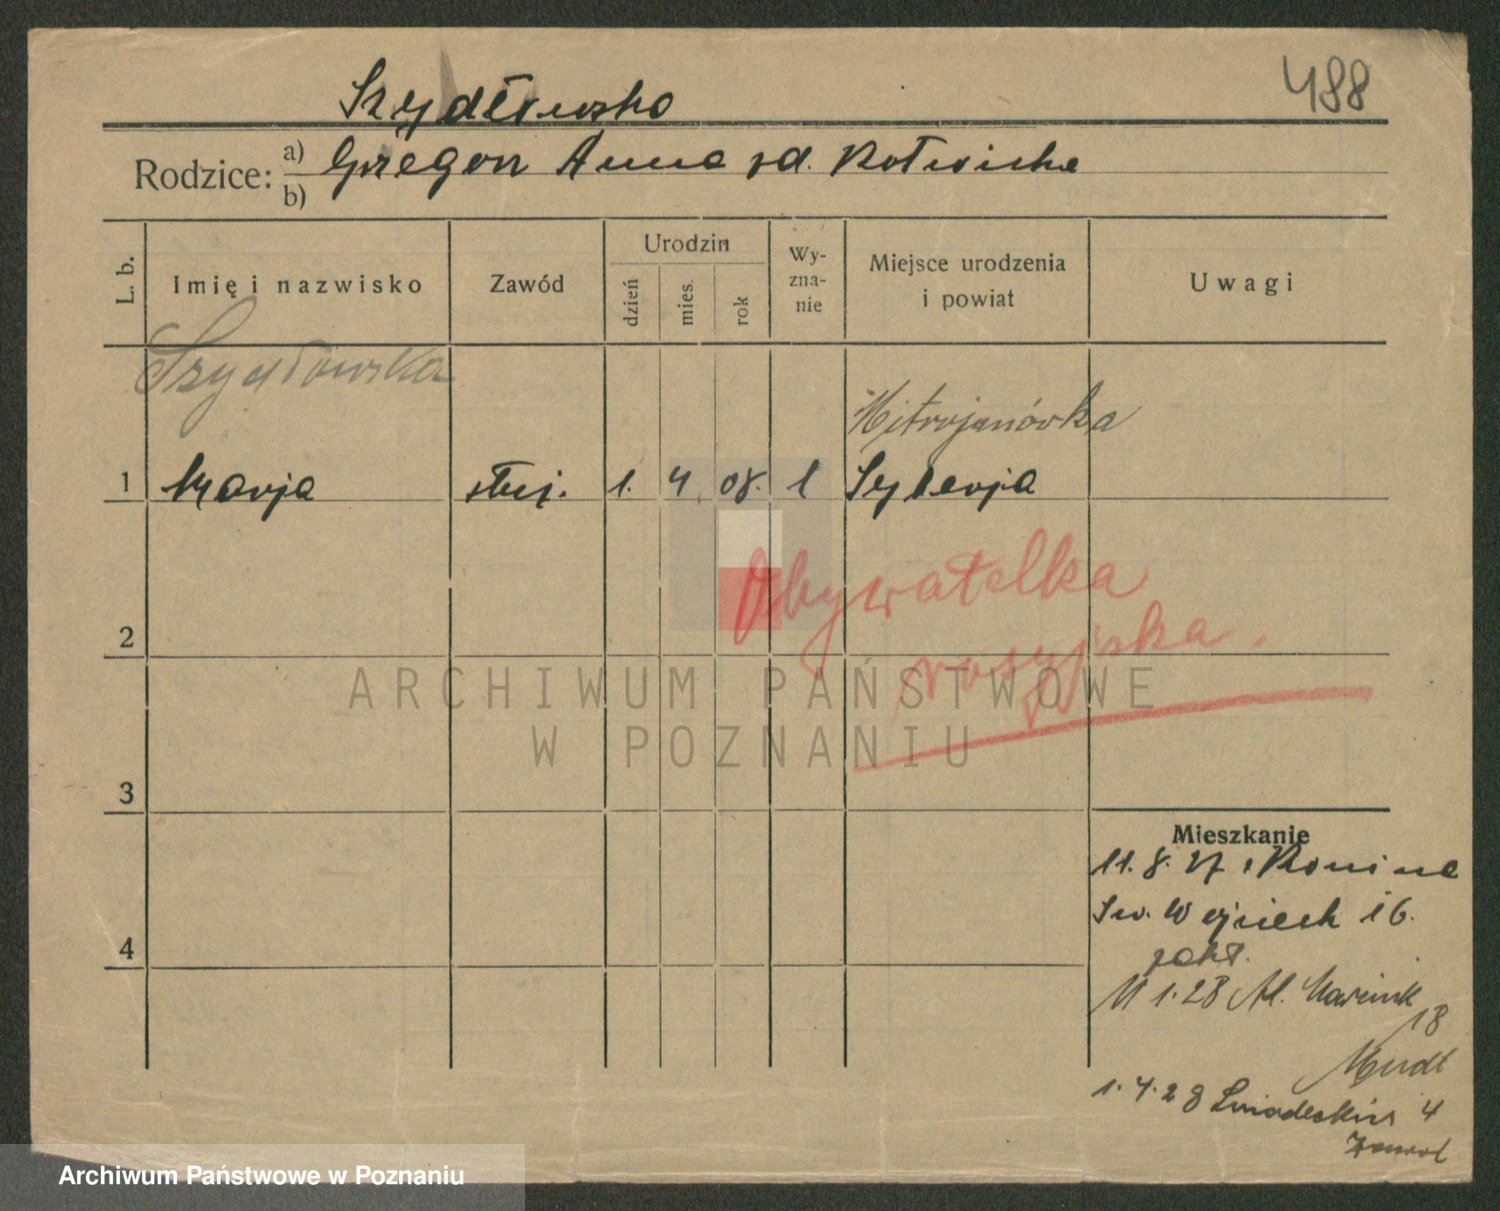 488
Szydłowska
Rodzice: a) Grzegorz Anna zd. Kotwicka
b)
L. b. Imię i nazwisko Zawód Urodzin dzień mies. rok Wy-zna-nie Miejsce urodzenia i powiat Uwagi
Szydłowska
Mitrojanówka
1 Marja służ. 1. 4. 08. 1 Syberja
Obywatelka
2
rosyjska.
ARCHIWUM PAŃSTWOWE
W POZNANIU
3
Mieszkanie
11. 8. 27
Św. Wojciech 16.
4
11 1. 28 Al. Marcink
18
1. 4. 28 Śniadeckich 4
Archiwum Państwowe w Poznaniu